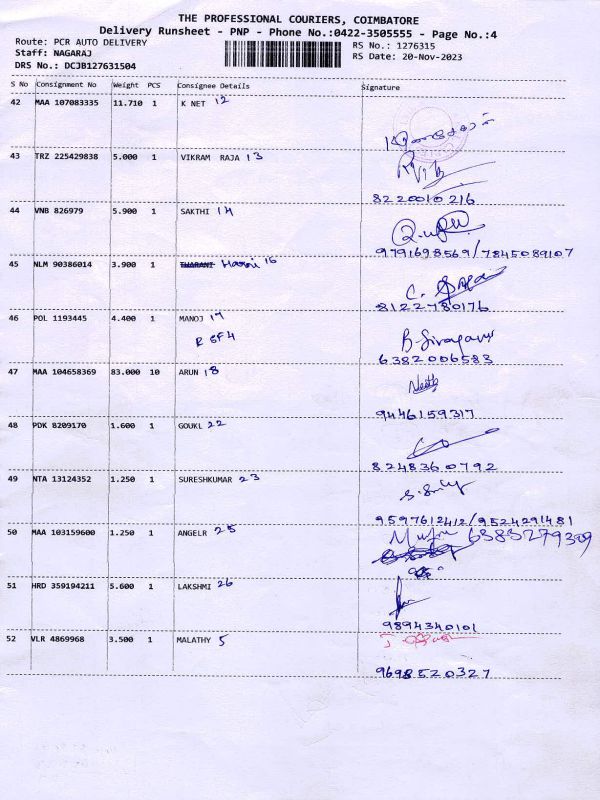 THE PROFESSIONAL COURIERS, COIMBATORE
Delivery Runsheet - PNP - Phone No.:0422-3505555 - Page No.:4
Route: PCR AUTO DELIVERY
RS No.: 1276315
Staff: NAGARAJ
RS Date: 20-Nov-2023
DRS No.: DCJB127631504
S No Consignment No Weight PCS Consignee Details Signature
42 MAA 107083335 11.710 1 K NET 12
43 TRZ 225429838 5.000 1 VIKRAM RAJA 13
8220010216
44 VNB 826979 5.900 1 SAKTHI 14
9791698569/7845089107
45 NLM 90386014 3.900 1 THARANI Harni 16
8122780176
46 POL 1193445 4.400 1 MANOJ 17
R SF4
6382006583
47 MAA 104658369 83.000 10 ARUN 18
9446159317
48 PDK 8209170 1.600 1 GOUKL 22
8248360792
49 NTA 13124352 1.250 1 SURESHKUMAR 23
9597612412/9524291481
50 MAA 103159600 1.250 1 ANGELR 25
6383279309
51 HRD 359194211 5.600 1 LAKSHMI 26
9894340101
52 VLR 4869968 3.500 1 MALATHY 5
9698520327